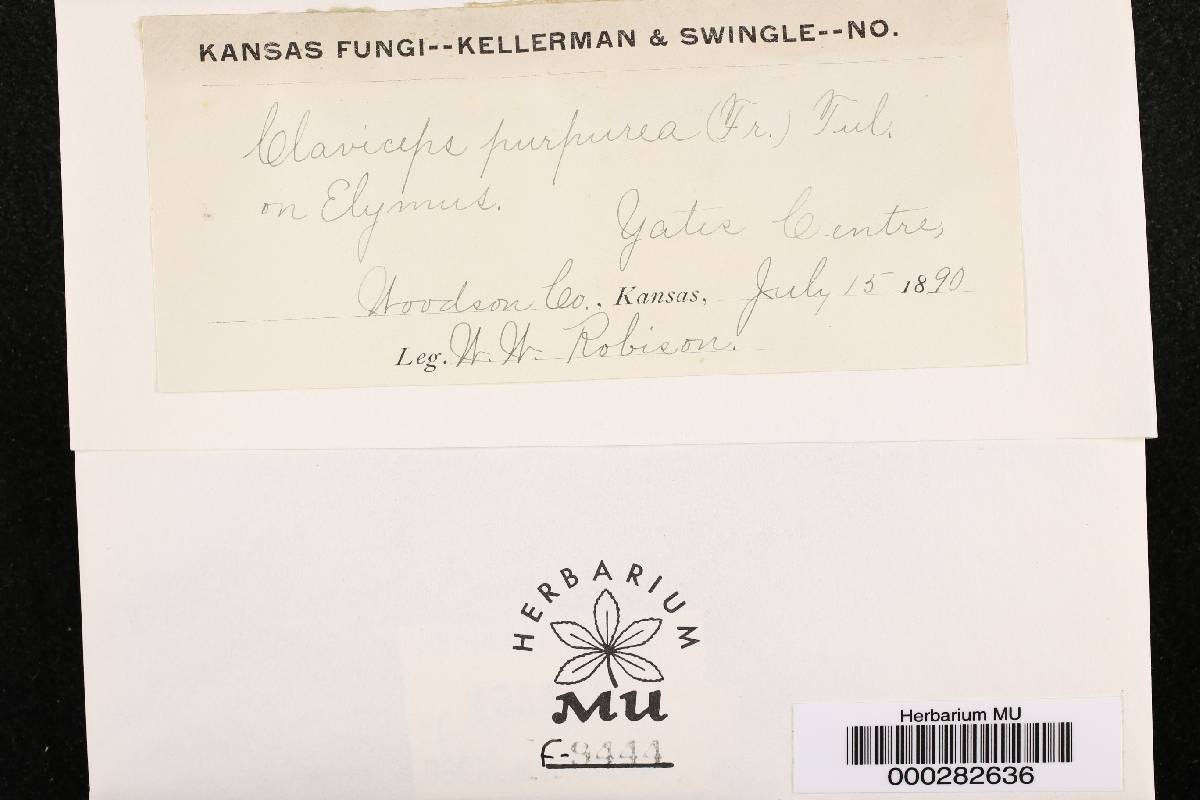 KANSAS FUNGI--KELLERMAN & SWINGLE--NO.
Claviceps purpurea (Fr.) Tul.
on Elymus.
Yates Centre,
Woodson Co., Kansas, July 15 1890
Leg. W. W. Robison.
HERBARIUM
MU
F-9444
Herbarium MU
000282636